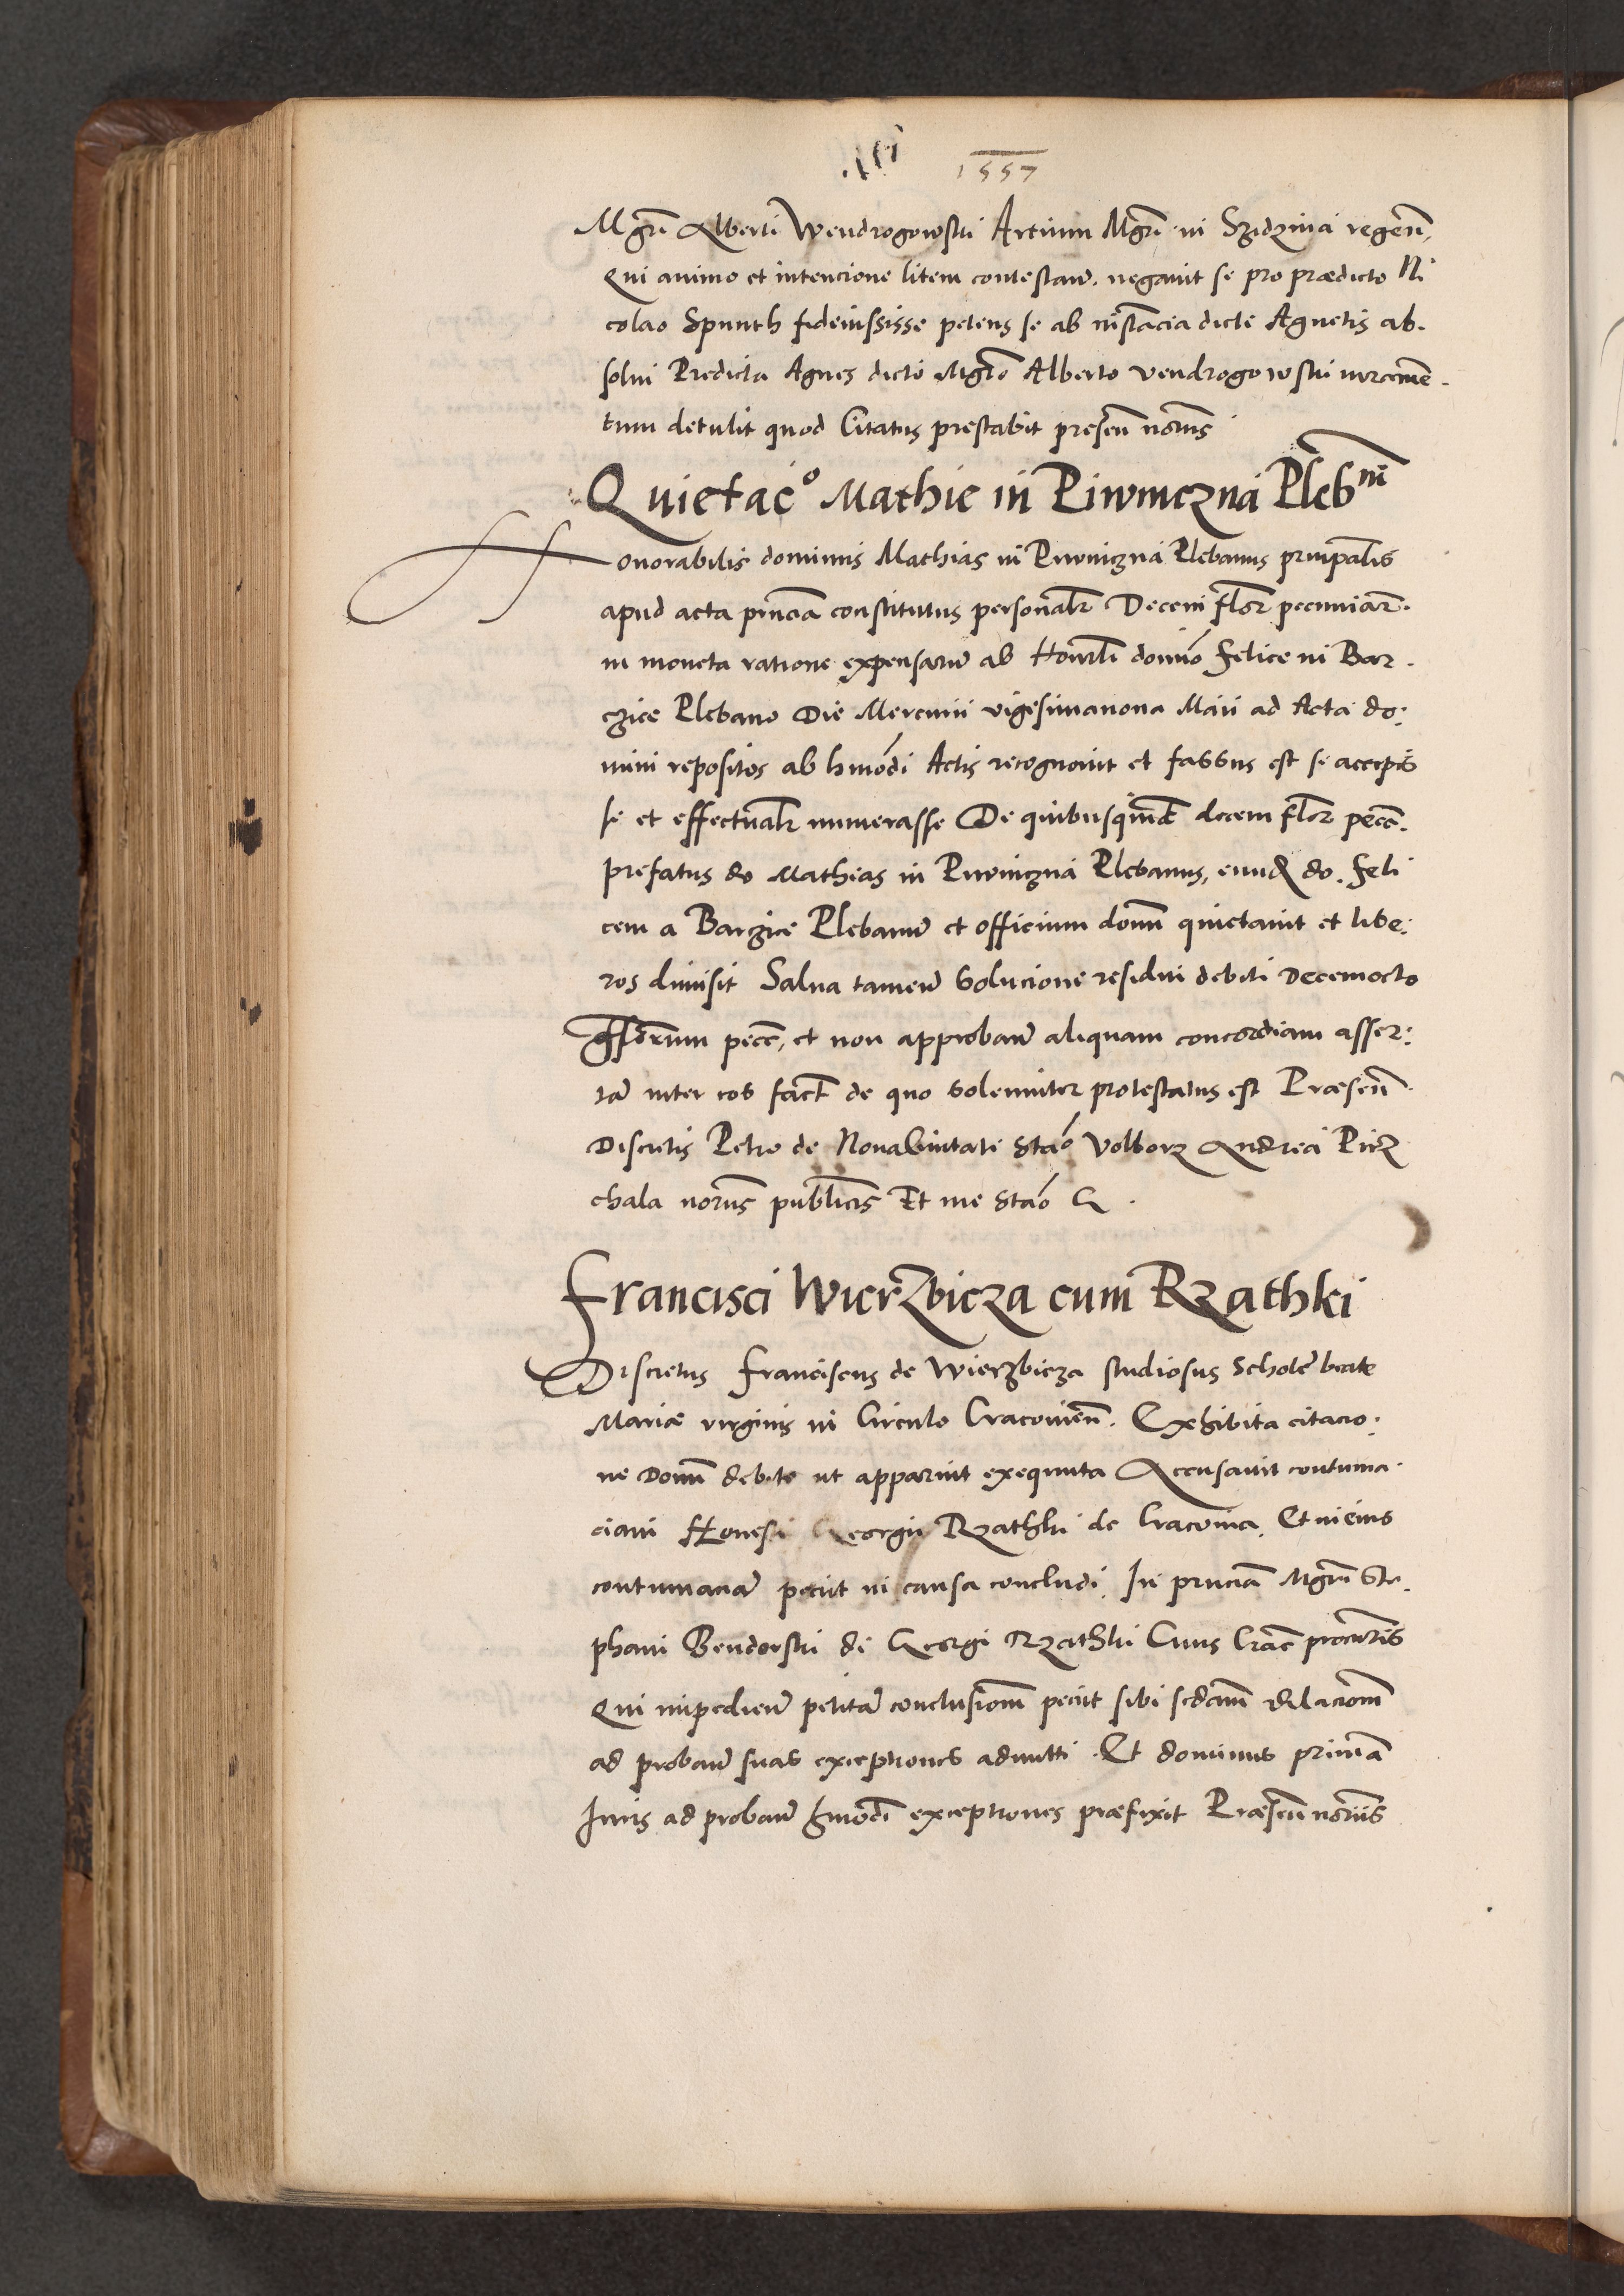 1557
Mgri Alberti Wendrogowski Artium Mgri in Szidzina regeñ,
Qui animo et intencione litem contestanđ. negavit se pro prædicto Ni
colao Spunth fideiussisse petens se ab instãcia dicte Agnetis ab.
solui Predicta Agnes dicto Mgro Alberto Vendrogowski iuramen.
tum detulit quod Citatus prestabit preseñ notarijs
Quietaco Mathie in Piwniczna Plebni
Honorabilis dominus Mathias in Piwniczna Plebanus principalis
apud acta pñcia constitutus personalr Decem flor pecuniar.
in moneta ratione expensarũ ab Honrli domĩo Felice in Bar.
czice Plebano Die Mercurii vigesimanona Maii ad Acta do:
mini repositos ab hmõdi Actis recognouit et fassus est se accepis
se et effectualr numerasse De quibusquidẽ decem flor pecc.
prefatus do Mathias in Piwniczna Plebanus, eunđ do. Feli
cem a Barczice Plebanũ et officium domñ quietauit et libe:
ros dimisit Salua tamen solucione residui debiti Decemocto
florenorum pecc, et non approbanđ aliquam concordiam asser:
tã inter eos fact de quo solenniter protestatus est Præseñ
Discretis Petro de Nouaciuitate Stão Volborz Andrea Pirz
chala norijs publicis Et me Stão G.
Francisci Wierzbicza cum Rzathki
Discretus Franciscus de Wierzbicza studiosus Scholæ beate
Mariæ virginis in Circulo Cracouieñ. Exhibita citacio.
ne Domñ debite ut apparuit exequuta Accusauit contuma.
ciam Honesti Georgii Rzathki de Cracouia. Et in eius
contumaciã petiit in causa concludi. In pñciã Mgri Ste.
phani Bendorski de Georgi Rzathki Ciuis Crac procuris
Qui impedienđ petitã conclusionẽ petiit sibi scđam dilacionẽ
ad probanđ suas exceptiones admitti. Et dominus primã
Iuris ad probanđ hmõdi exceptiones præfixit Præseñ norijs